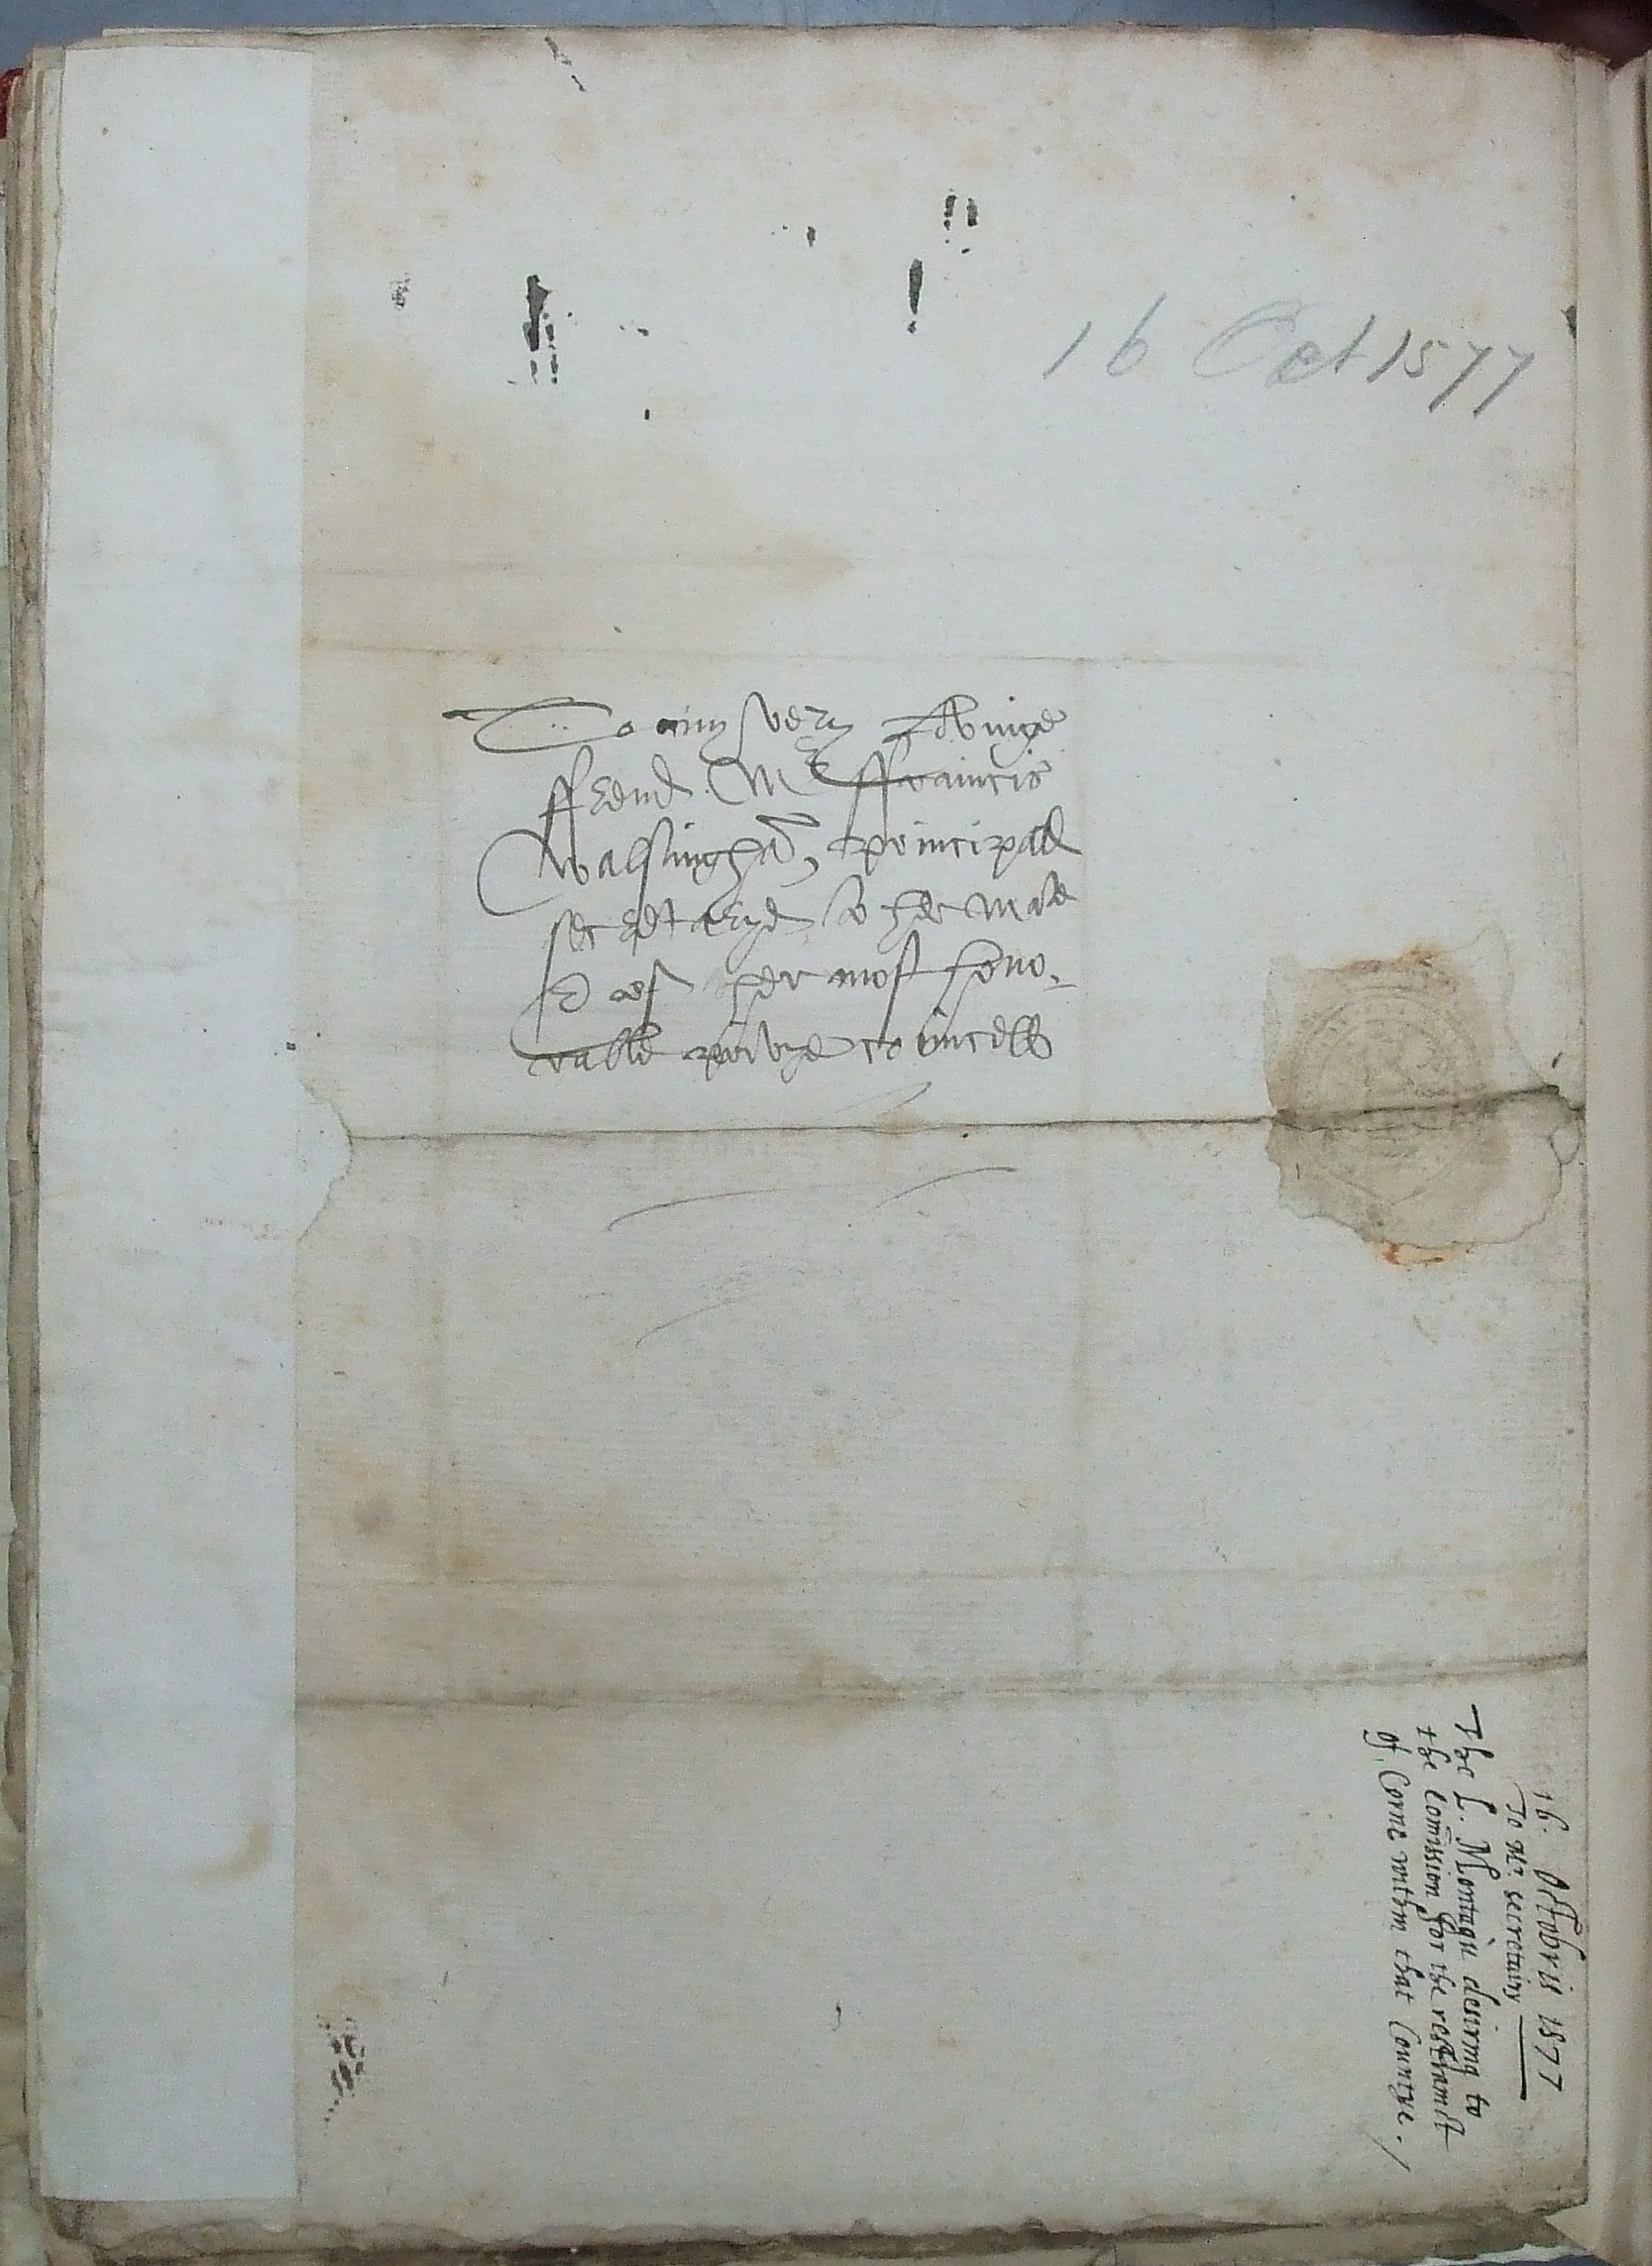 16 Oct 1577
To my very lovinge
ffrend Mr ffrauncis
Walsingha, principall
secretarye to her Matie
& of her most hono-
rable privye councell
16. Octobris 1577
To Mr. secretairy
The L. Montagu desiring to
the Comission for the restrainct
of Corne within that Countye.